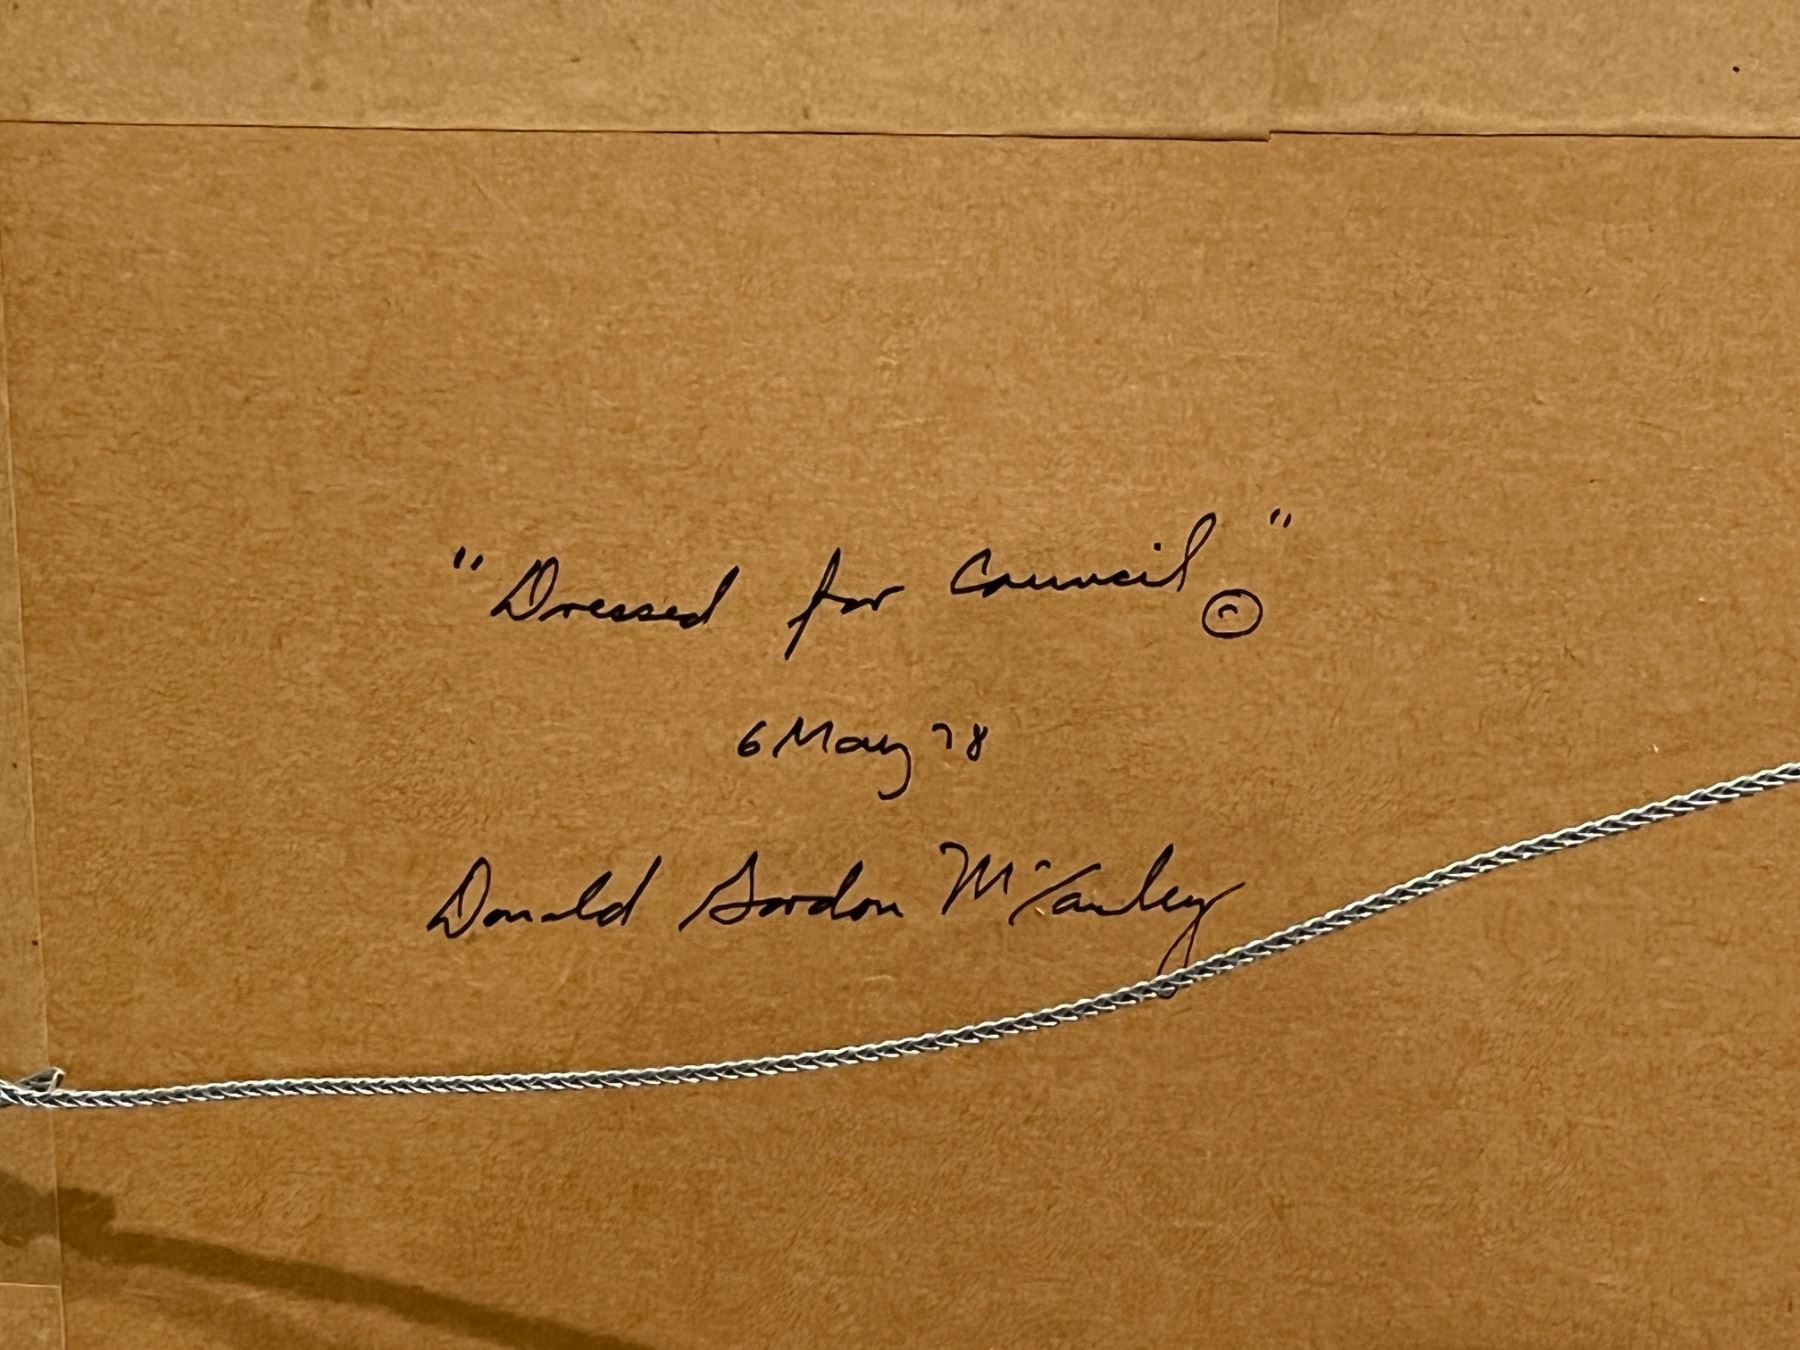 "Dressed for Council ©"
6 May 78
Donald Gordon McCauley